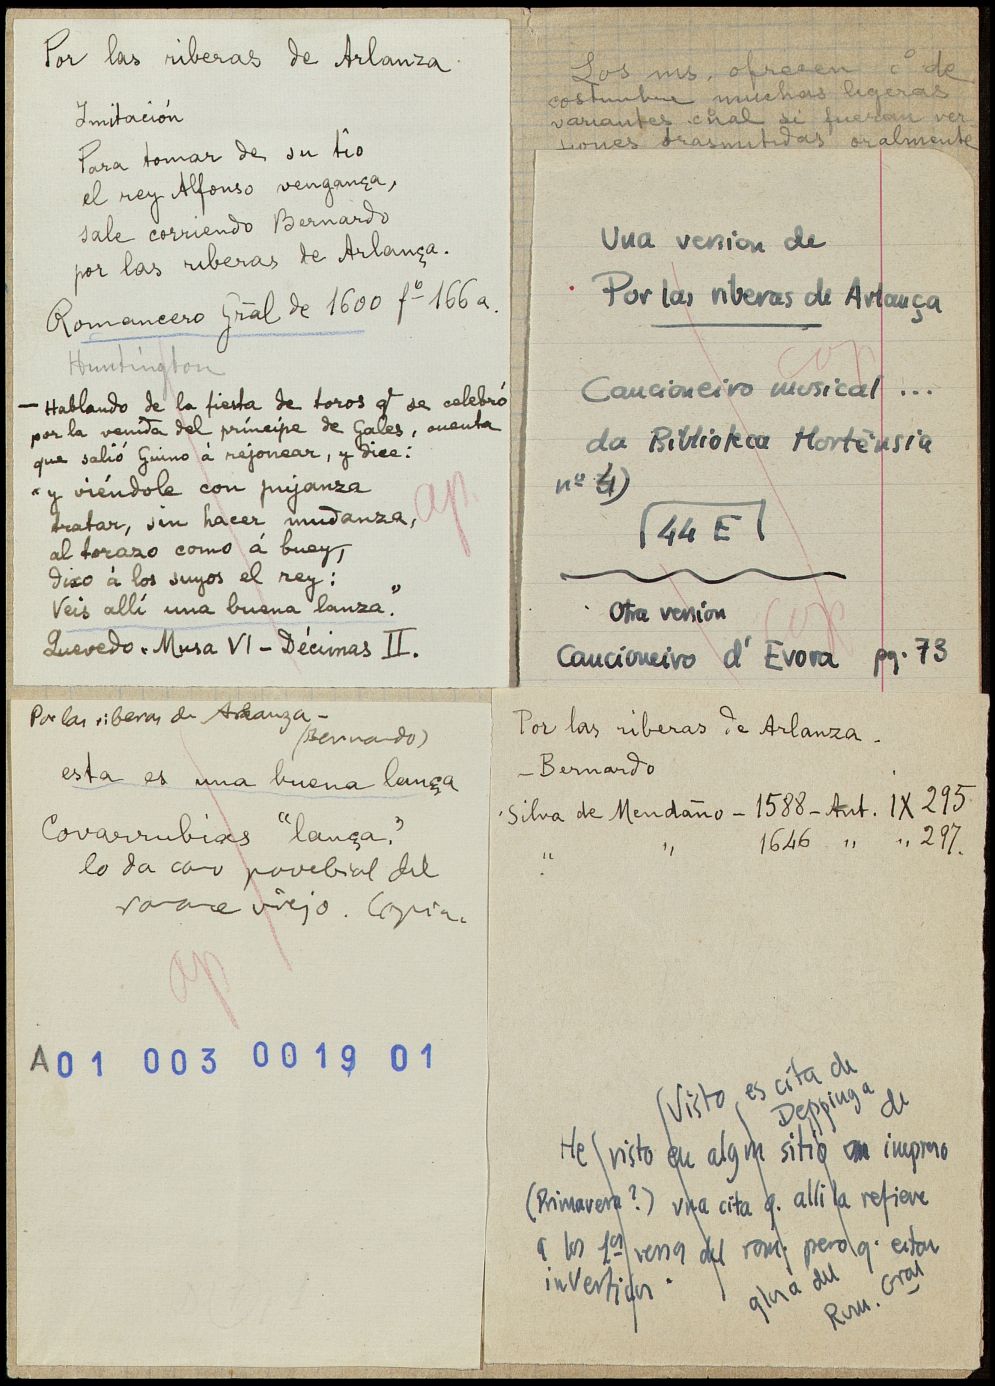 Por las riberas de Arlanza.
Imitación
Para tomar de su tío
el rey Alfonso vengança,
sale corriendo Bernardo
por las riberas de Arlança.
Romancero Gral de 1600 fº 166 a.
Huntington
— Hablando de la fiesta de toros q̄ se celebró
por la venida del príncipe de Gales, cuenta
que salió á rejonear, y dice:
"y viéndole con pujanza
tratar, sin hacer mudanza,
al torazo como á buey,
dixo á los suyos el rey:
Veis allí una buena lanza".
Quevedo. Musa VI – Décimas II.
ap.
Los ms. ofrecen cº de
costumbre muchas ligeras
variantes cual si fueran ver
siones trasmitidas oralmente
Una version de
Por las riberas de Arlança
cop
Cancioneiro musical ...
da Biblioteca Hortênsia
nº 4)
44 E
Otra version
cop
Cancioneiro d' Evora pg. 73
Por las riberas de Arlanza –
(Bernardo)
esta es una buena lança
Covarrubias "lança"
lo da como provebial del
romance viejo. Copia.
ap
A01 003 0019 01
Por las riberas de Arlanza.
– Bernardo
Silva de Mendaño – 1588 – Ant. IX 295
" " 1646 " " 297.
(Visto, es cita de
Depping a de
He visto en algun sitio impreso
(Primavera?) una cita q. alli la refiere
a los 1os versos del rom. pero q. estan
invertidos.
glosa del
Rom. Gral